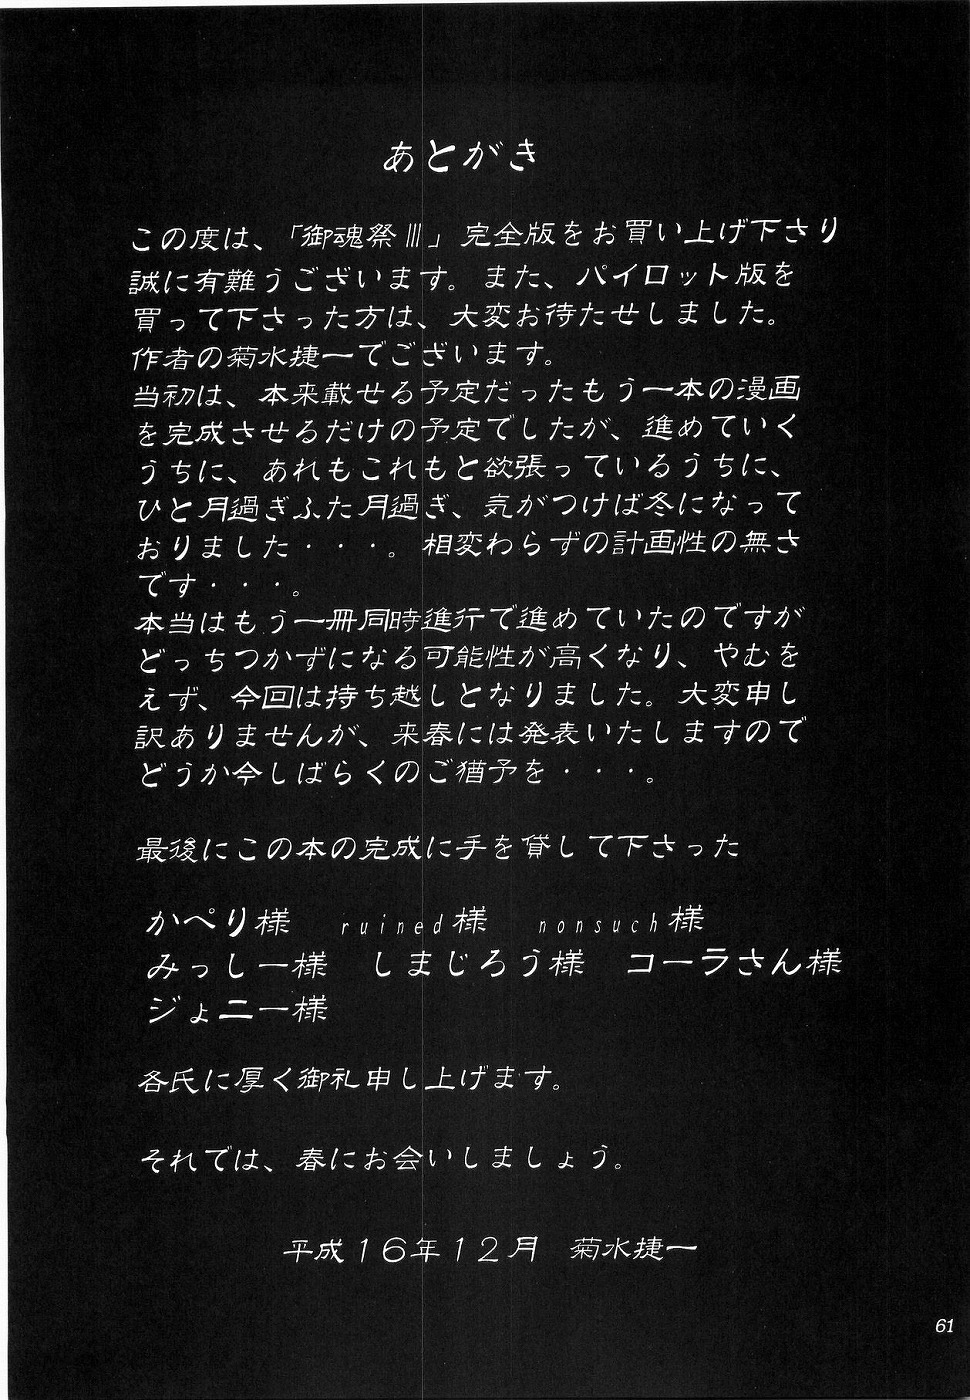 あとがき
この度は、「御魂祭Ⅲ」完全版をお買い上げ下さり
誠に有難うございます。また、パイロット版を
買って下さった方は、大変お待たせしました。
作者の菊水捷一でございます。
当初は、本来載せる予定だったもう一本の漫画
を完成させるだけの予定でしたが、進めていく
うちに、あれもこれもと欲張っているうちに、
ひと月過ぎふた月過ぎ、気がつけば冬になって
おりました・・・。相変わらずの計画性の無さ
です・・・。
本当はもう一冊同時進行で進めていたのですが
どっちつかずになる可能性が高くなり、やむを
えず、今回は持ち越しとなりました。大変申し
訳ありませんが、来春には発表いたしますので
どうか今しばらくのご猶予を・・・。
最後にこの本の完成に手を貸して下さった
かぺり様 ruined様 nonsuch様
みっしー様 しまじろう様 コーラさん様
ジョニー様
各氏に厚く御礼申し上げます。
それでは、春にお会いしましょう。
平成16年12月 菊水捷一
61